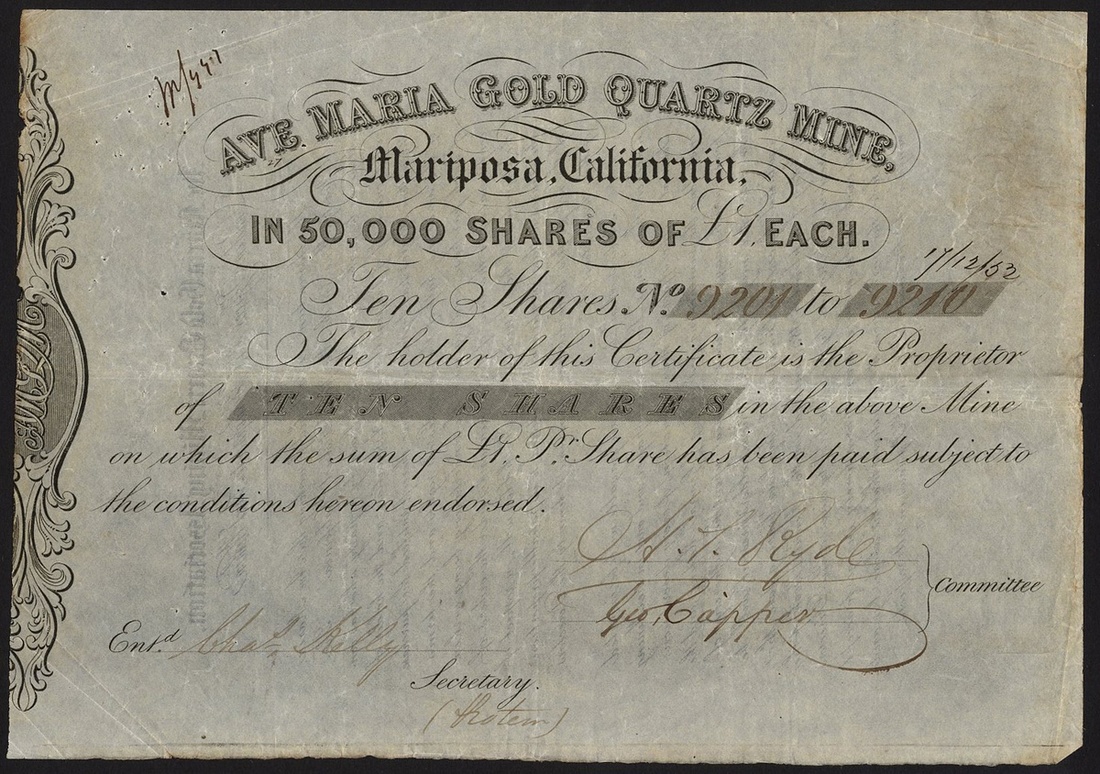 AVE MARIA GOLD QUARTZ MINE,
Mariposa, California,
IN 50,000 SHARES OF £1, EACH.
17/12/52
Ten Shares. No. 9201 to 9210
The holder of this Certificate is the Proprietor
of TEN SHARES in the above Mine
on which the sum of £1. Pr. Share has been paid subject to
the conditions hereon endorsed.
H. T. Ryde
Geo, Capper
Committee
Entd. Chas. Kelly
Secretary.
(Protem)